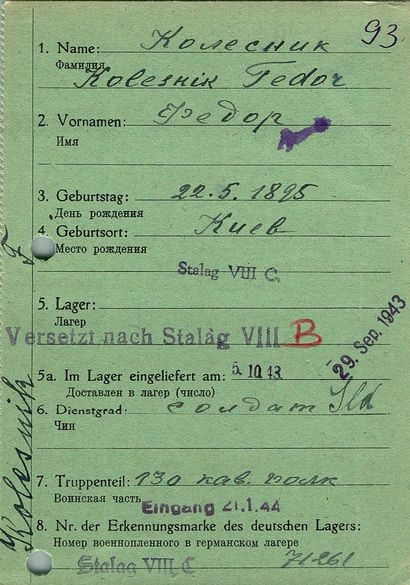 93
1. Name: Колесник
Фамилия
Kolesnik Fedor
2. Vornamen: Федор
Имя
3. Geburtstag: 22.5.1895
День рождения
4. Geburtsort: Киев
Место рождения
Stalag VIII C
5. Lager:
Лагер
Versetzt nach Stalag VIII B
29. Sep. 1943
5a. Im Lager eingeliefert am: 5.10.43
Доставлен в лагер (число)
6. Dienstgrad: солдат Sld
Чин
7. Truppenteil: 130 кав. полк
Воинская часть
Eingang 21.1.44
8. Nr. der Erkennungsmarke des deutschen Lagers:
Номер военнопленного в германском лагере
Stalag VIII C
71261
Kolesnik F